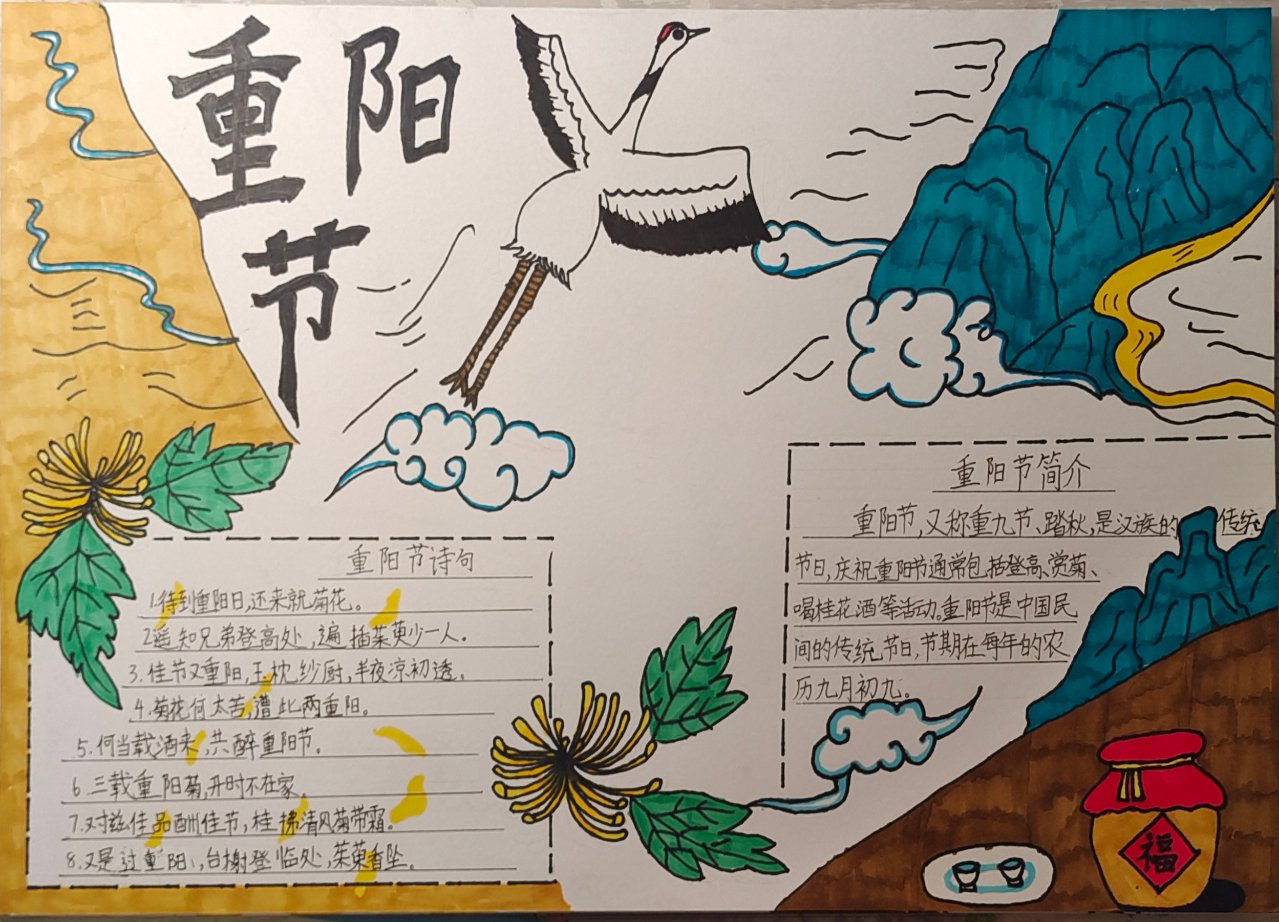 重阳
节
重阳节诗句
1.待到重阳日,还来就菊花。
2遥知兄弟登高处,遍插茱萸少一人。
3.佳节又重阳,玉枕纱厨,半夜凉初透。
4.菊花何太苦,遭此两重阳。
5.何当载酒来,共醉重阳节。
6.三载重阳菊,开时不在家。
7.对兹佳品酬佳节,桂拂清风菊带霜。
8.又是过重阳,台榭登临处,茱萸香坠。
重阳节简介
重阳节,又称重九节、踏秋,是汉族的传统
节日,庆祝重阳节通常包括登高、赏菊、
喝桂花酒等活动。重阳节是中国民
间的传统节日,节期在每年的农
历九月初九。
福